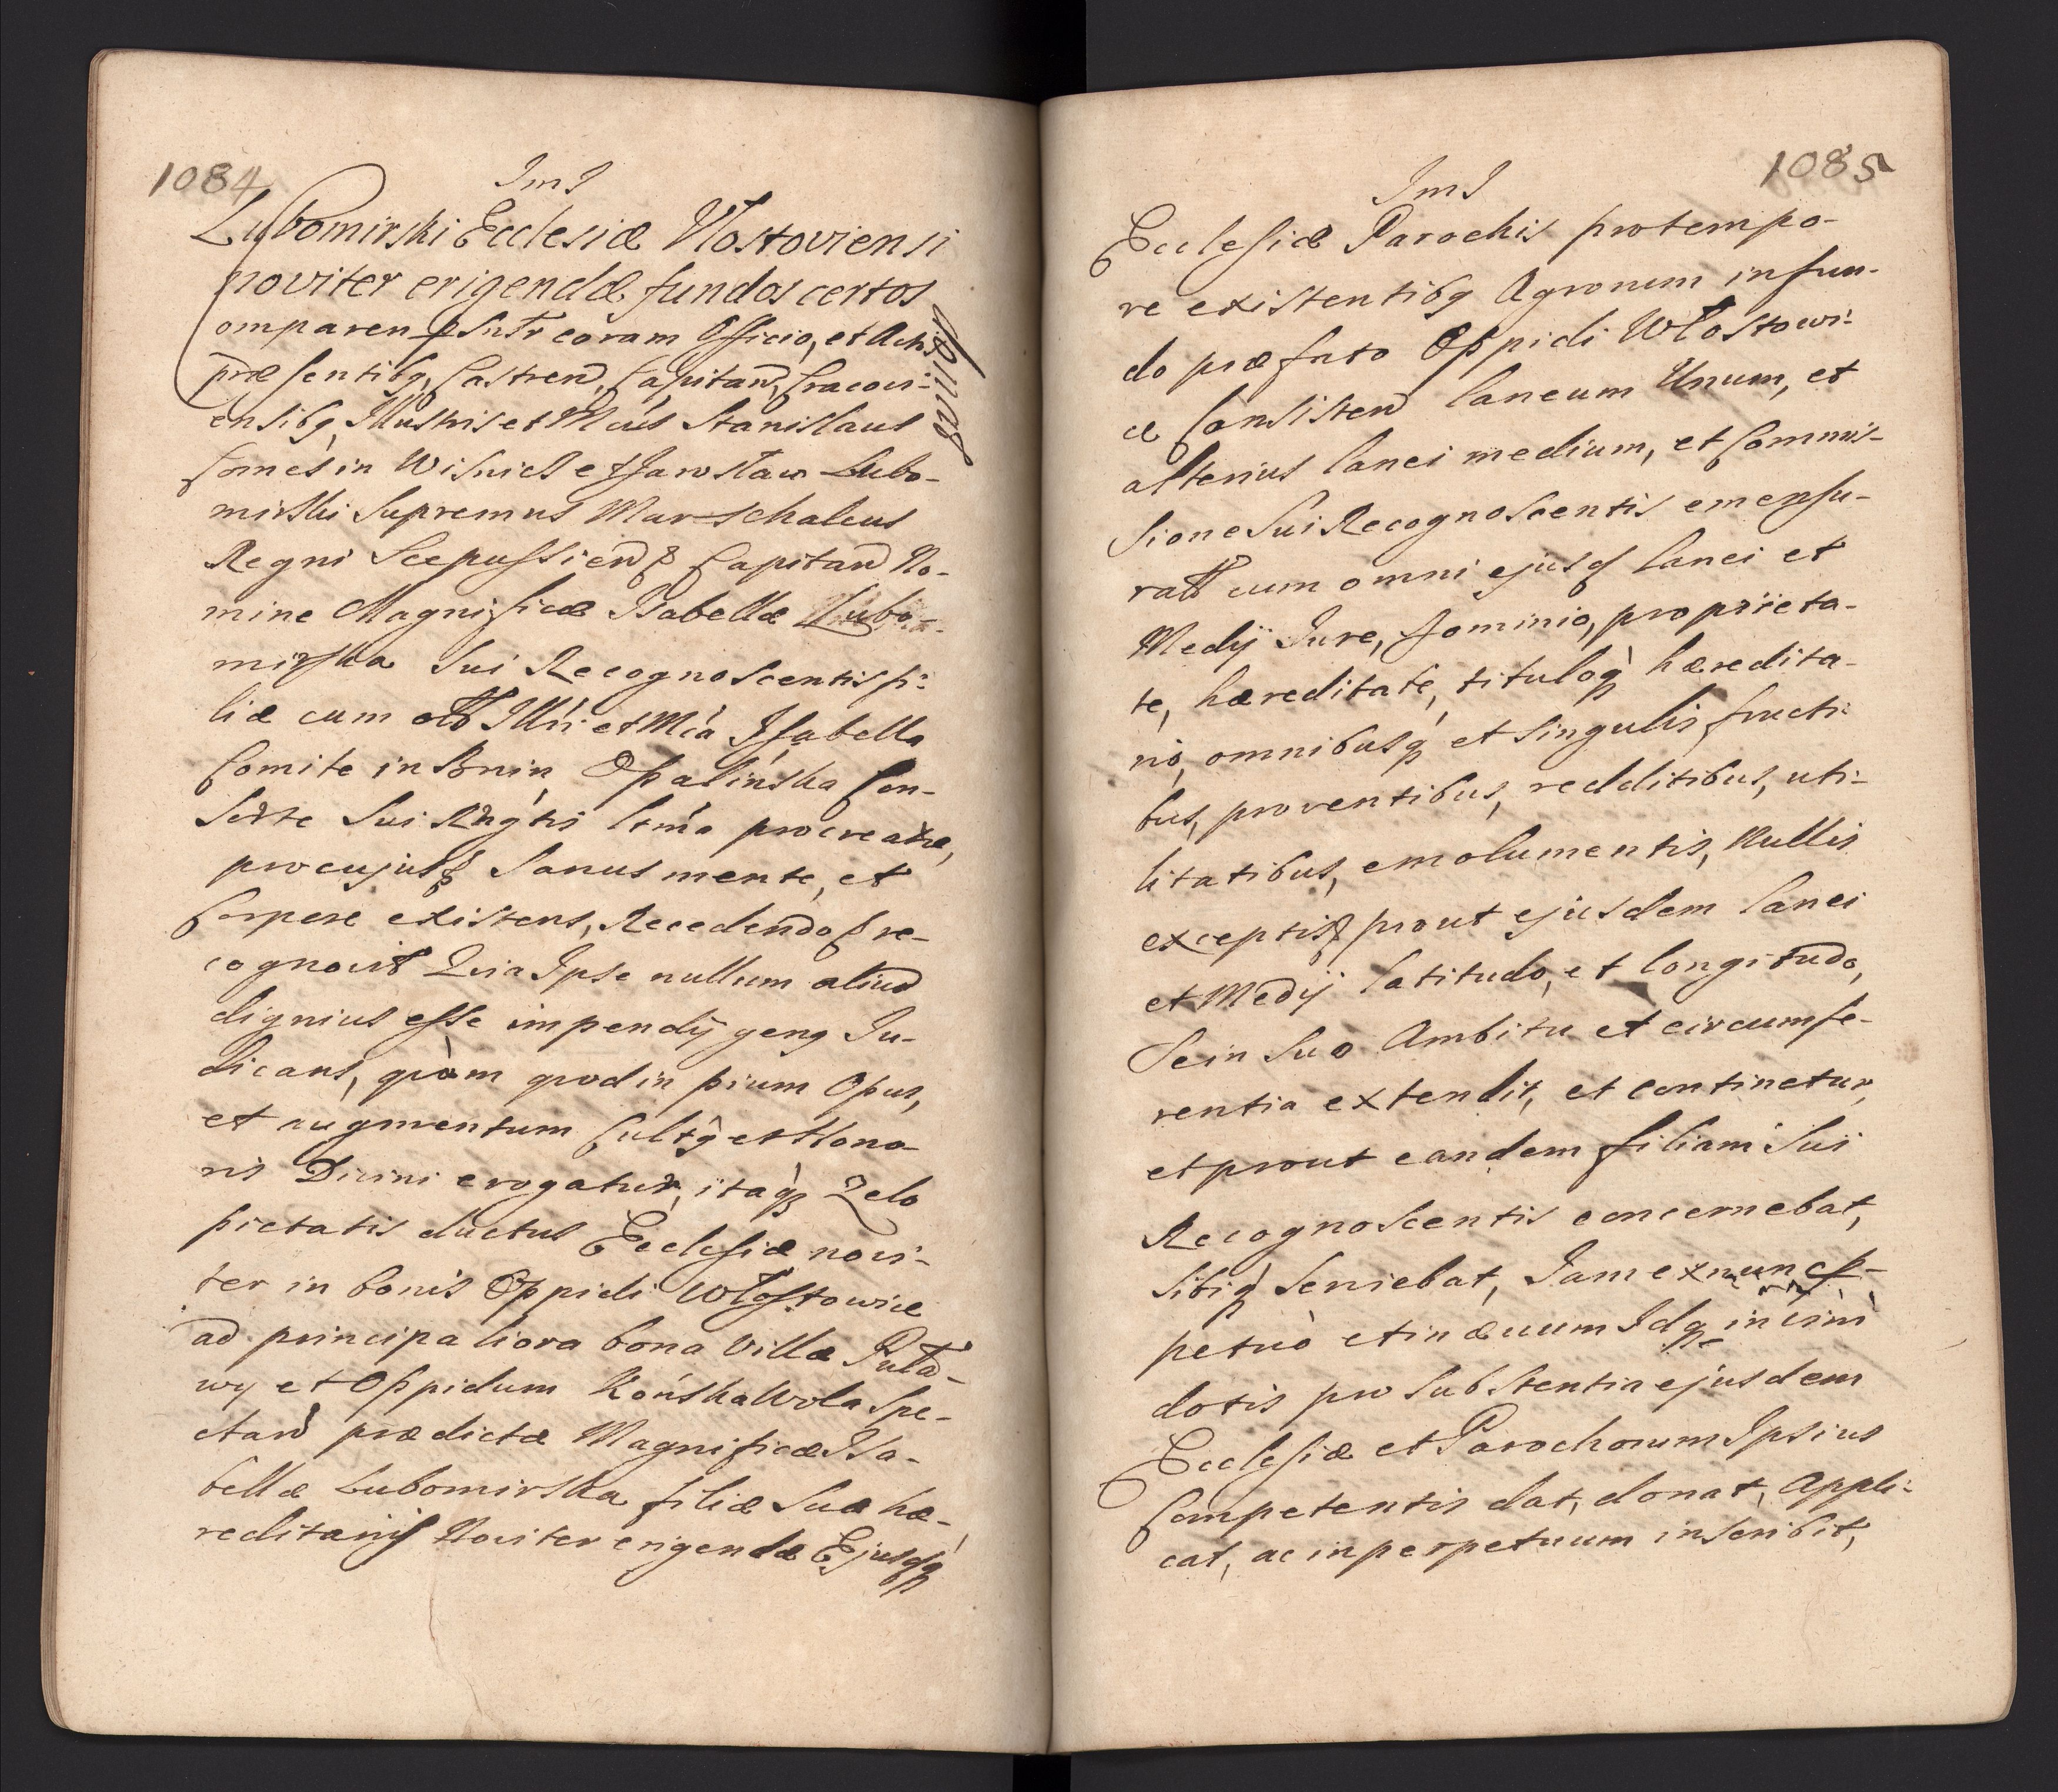 1084
JmJ
Lubomirski Ecclesiæ Vłostoviensi
noviter erigendæ fundos certos
donat
Comparens psntr coram Officio, et Actis
præsentibq, Castren, Capitan, Cracovi-
ensibq, Illustris et Mcus Stanislaus
Comes in Wisnicz et Jarosław Lubo-
mirski Supremus Marschalcus
Regni Scepussien & Capitan No-
mine Magnificæ Isabellæ Lubo-
mirska sui Recognoscentis fi-
liæ cum olt Illri et Mca Isabella
Comite in Bnin Opalinska Con-
sorte sui Rngtis ltma procreatæ,
pro cujus & Sanus mente, et
Corpore existens, Recedendo & re-
cognovit Quia Ipse nullum aliud
dignius esse impendij geng Ju-
dicans, quàm quod in pium Opus,
et augmentum Cultq et Hono-
ris Divini erogatur, itaq Zelo
pietatis ductus Ecclesiæ novi-
ter in bonis Oppidi Włostowice
ad principaliora bona Villæ Puła-
wy et Oppidum Końska Wola spe-
ctan prædictæ Magnificæ Isa-
bellæ Lubomirska filiæ suæ hæ-
reditarijs Noviter erigendæ Ejusqq
1085
JmJ
Ecclesiæ Parochis protempo-
re existentibq Agrorum in fun-
do præfato Oppidi Włostowi-
ce Consisten laneum Unum, et
alterius lanei medium, et Commis-
sione sui Recognoscentis emensu-
rat cum omni ejusq lanei et
Medij Jure, dominio, proprieta-
te, hæreditate, tituloq hæredita-
rio, omnibusq et singulis fructi-
bus, proventibus, redditibus, uti-
litatibus, emolumentis, Nullis
exceptis & prout ejusdem lanei
et Medij latitudo, et longitudo,
se in suo Ambitu et circumfe-
rentia extendit, et continetur,
et prout eandem filiam sui
Recognoscentis concernebat,
sibiq serviebat, Jam ex nunc p-
petuò et in ævum Idq in vim
dotis pro substentia ejusdem
Ecclesiæ et Parochorum Ipsius
Competentis dat, donat, appli-
cat, ac in perpetuum inscribit,